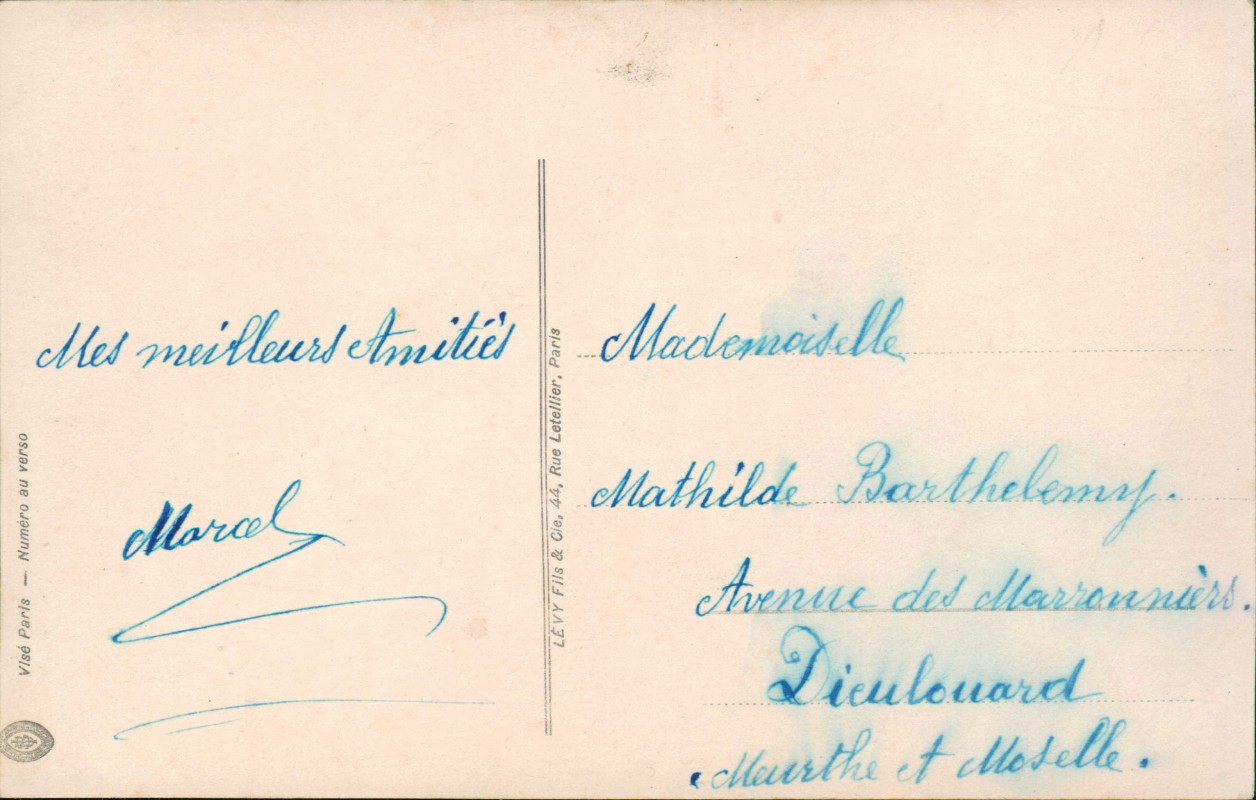 Mes meilleurs Amitiés
Marcel
Visé Paris — Numéro au verso
LÉVY Fils & Cie, 44, Rue Letellier, Paris
Mademoiselle
Mathilde Barthelemy.
Avenue des Marronnièrs.
Dieulouard
Meurthe et Moselle.